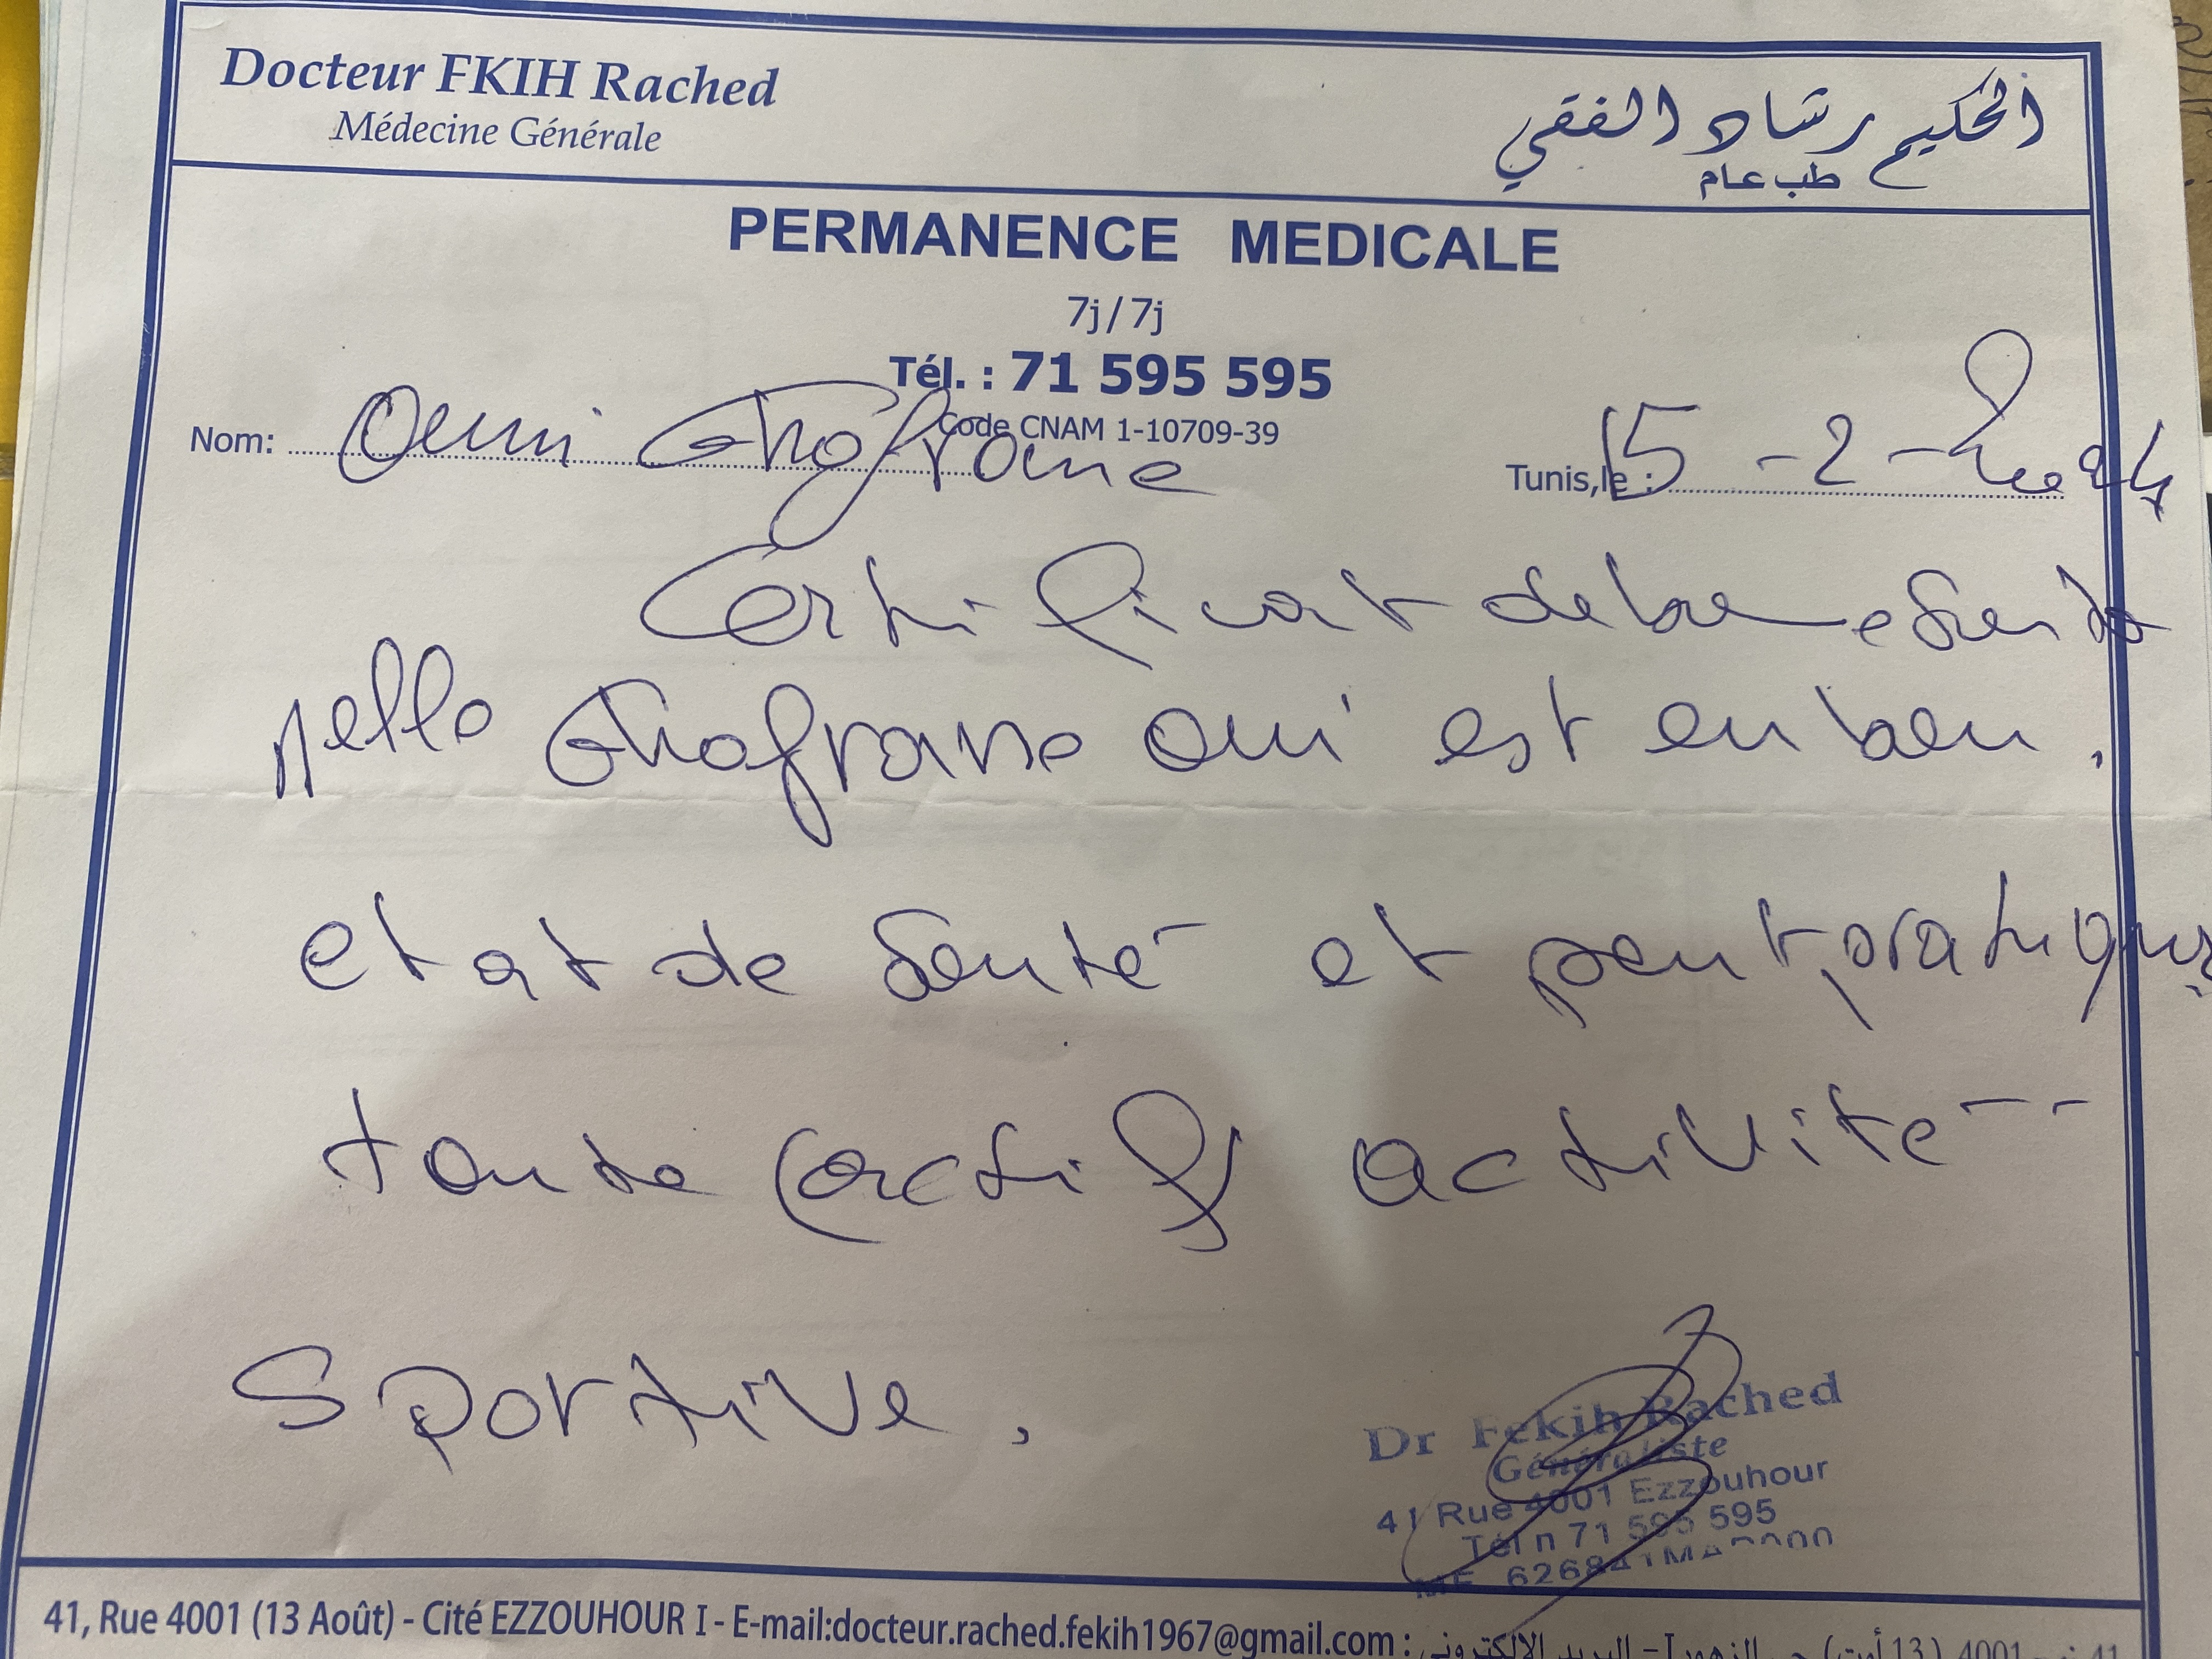 Docteur FKIH Rached
Médecine Générale
الحكيم رشاد الفقي
طب عام
PERMANENCE MEDICALE
7j/7j
Tél. : 71 595 595
Code CNAM 1-10709-39
Nom: Ouni Ghofrane
Tunis,le : 15-2-2024
Certificat de bonne Santé
Melle Ghofrane Ouni est en bon
etat de Santé et peut pratiquer
toute activité
Sportive.
Dr Fekih Rached
Généraliste
41 Rue 4001 Ezzouhour
Tél n 71 595 595
41, Rue 4001 (13 Août) - Cité EZZOUHOUR I - E-mail:docteur.rached.fekih1967@gmail.com : البريد الالكتروني